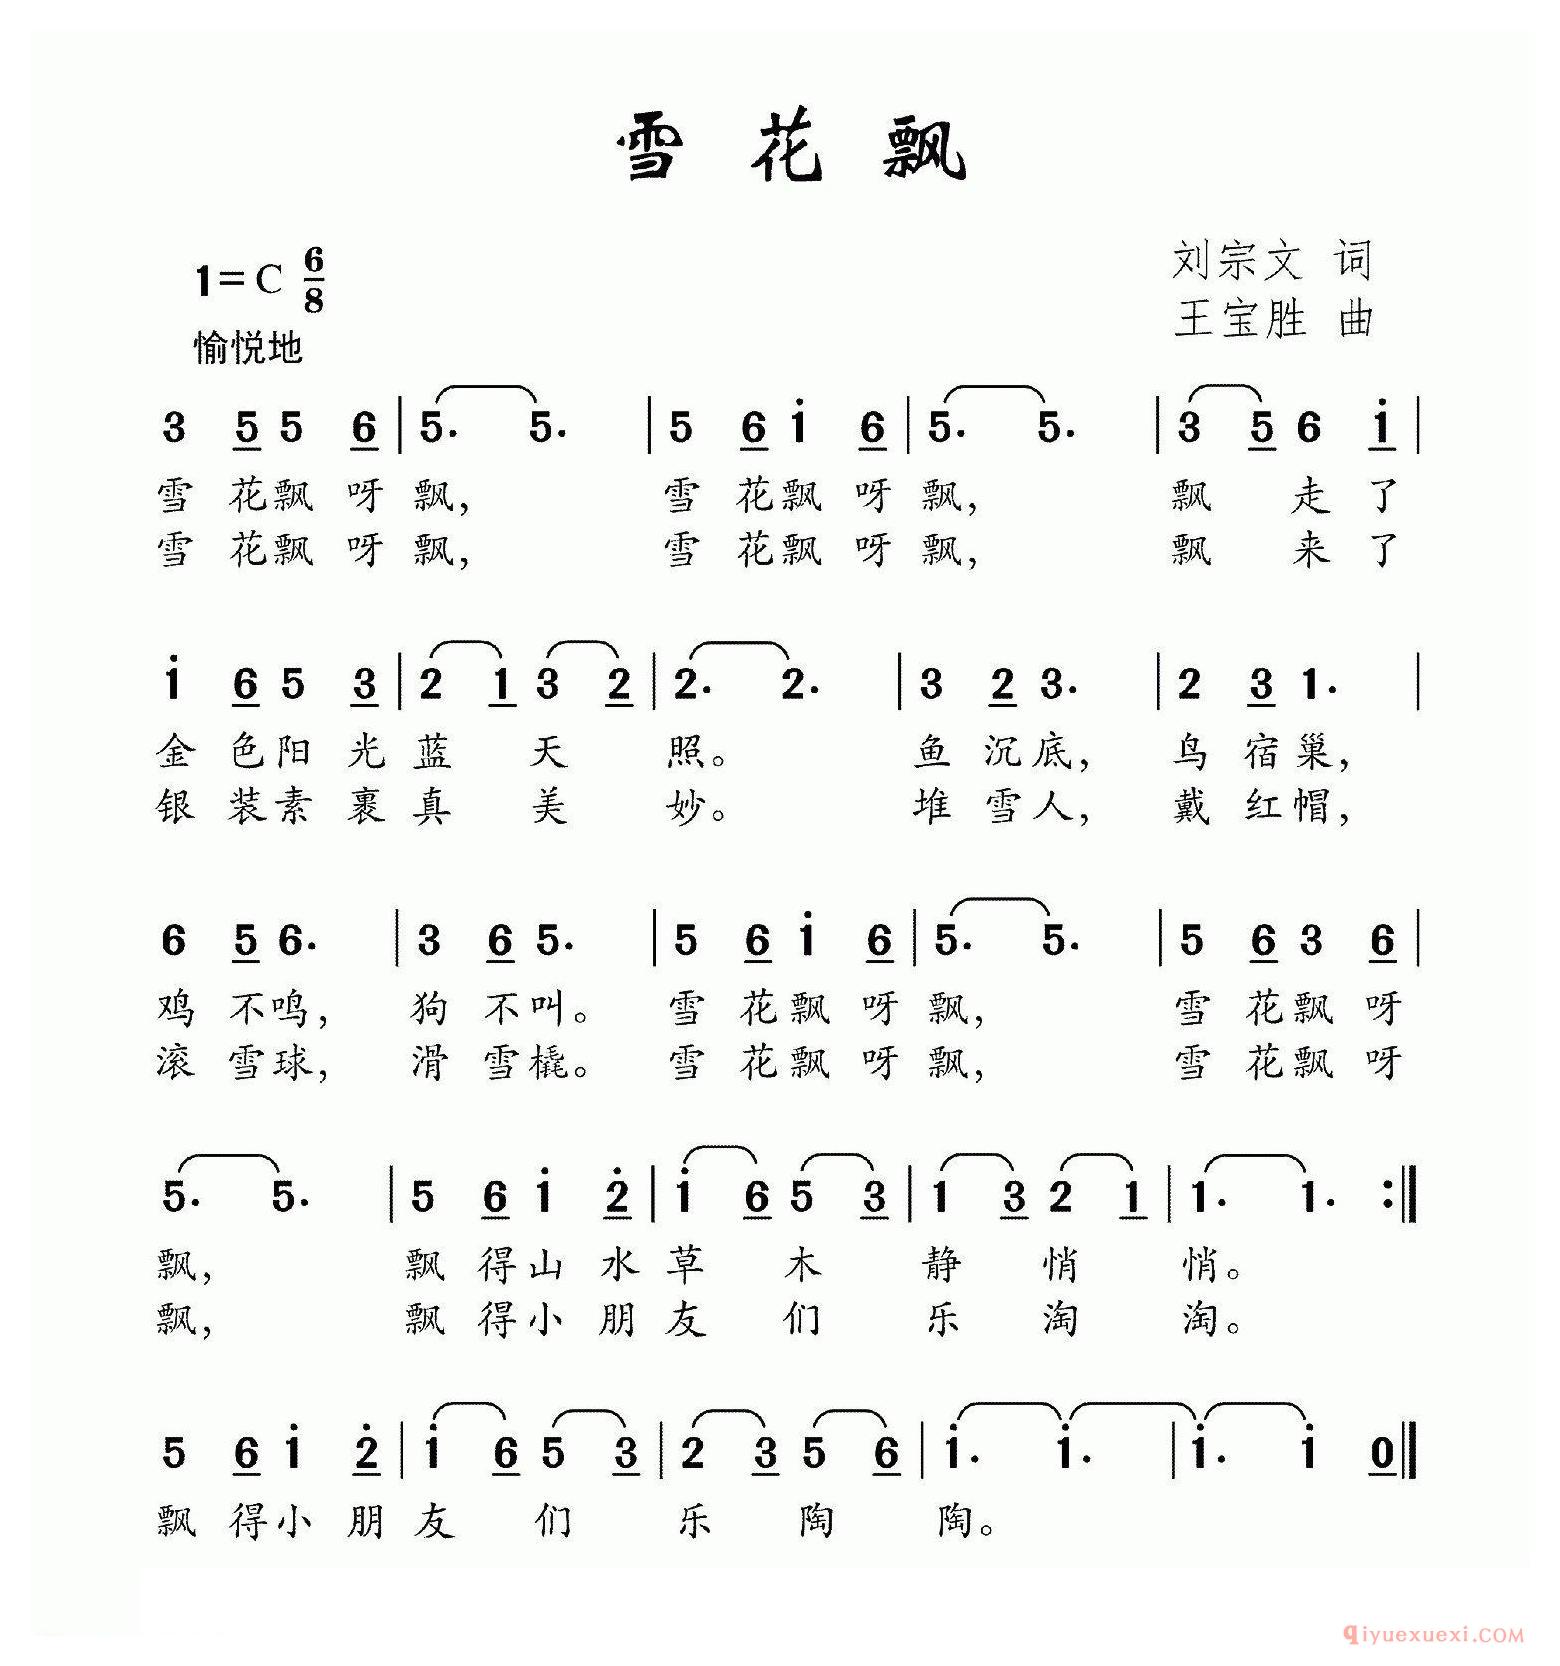 雪 花 飘
1=C 6/8
刘宗文 词
王宝胜 曲
愉悦地
3 5 5 6 | 5. 5. | 5 6 i 6 | 5. 5. | 3 5 6 i |
雪 花飘 呀 飘, 雪 花飘 呀 飘, 飘 走 了
雪 花飘 呀 飘, 雪 花飘 呀 飘, 飘 来 了
i 6 5 3 | 2 1 3 2 | 2. 2. | 3 2 3. | 2 3 1. |
金 色阳 光 蓝 天 照。 鱼 沉底, 鸟 宿巢,
银 装素 裹 真 美 妙。 堆 雪人, 戴 红帽,
6 5 6. | 3 6 5. | 5 6 i 6 | 5. 5. | 5 6 3 6 |
鸡 不鸣, 狗 不叫。 雪 花飘 呀 飘, 雪 花飘 呀
滚 雪球, 滑 雪橇。 雪 花飘 呀 飘, 雪 花飘 呀
5. 5. | 5 6 i 2̇ | i 6 5 3 | 1 3 2 1 | 1. 1. :‖
飘, 飘 得山 水 草 木 静 悄 悄。
飘, 飘 得小 朋 友 们 乐 淘 淘。
5 6 i 2̇ | i 6 5 3 | 2 3 5 6 | i. i. | i. i 0 ‖
飘 得小 朋 友 们 乐 陶 陶。
qiyuexuexi.COM